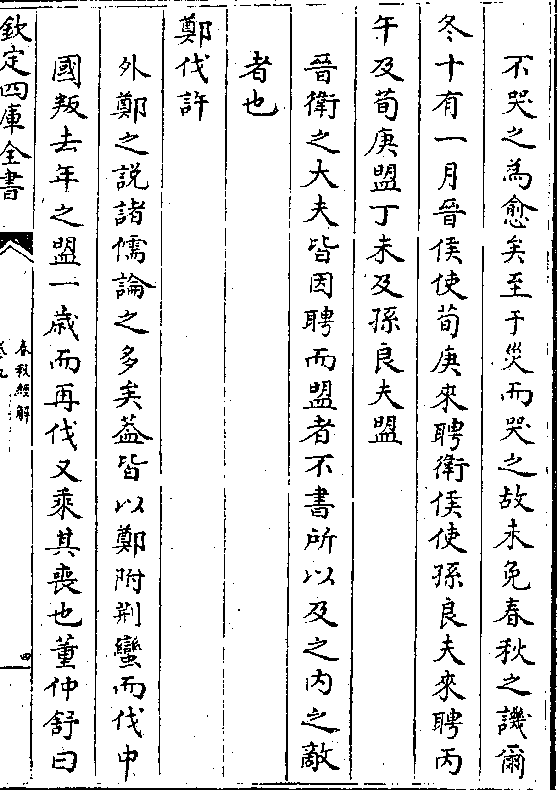 不哭之為愈矣至于災而哭之故未免春秋之譏爾
冬十有一月晉侯使荀庚來聘衛侯使孫良夫來聘丙
午及荀庚盟丁未及孫良夫盟
晉衛之大夫皆因聘而盟者不書所以及之内之敵
者也
鄭伐許
外鄭之説諸儒論之多矣葢皆以鄭附荆蠻而伐中
國叛去年之盟一歲而再伐又乘其喪也董仲舒曰
欽定四庫全書
春秋經解
卷九
四